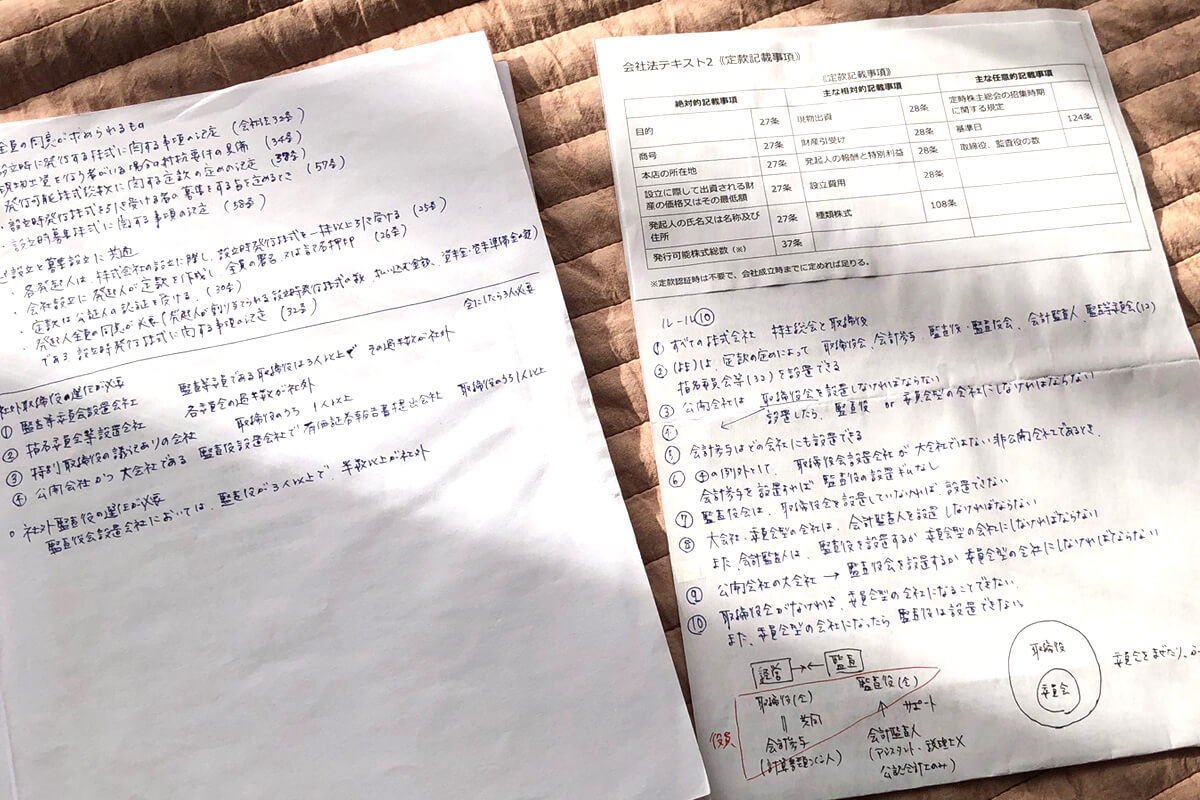 全員の同意が求められるもの
設立時に発行する株式に関する事項の決定 (会社法32条)
現物出資を行う者がいる場合の 要件の具備 (34条)
発行可能株式総数に関する定款の定めの決定 (37条)
・設立時発行株式を引き受ける者の募集をする旨を定めるとき (57条)
・設立時募集株式に関する事項の決定 (58条)
設立と募集設立に共通
・各発起人は、株式会社の設立に際し、設立時発行株式を一株以上引き受ける (25条)
・会社設立に発起人が定款を作成し 全員の署名又は記名押印 (26条)
・定款は公証人の認証を受ける。(30条)
・発起人全員の同意が必要 (発起人が割り当てられる設立時発行株式の数、払い込む金額、資本金・資本準備金の額)
である 設立時発行株式に関する事項の決定 (32条)
社外取締役の選任が必要 会にしたら3人必要
① 監査等委員会設置会社 監査等委員である取締役は3人以上で その過半数が社外
② 指名委員会等設置会社 各委員会の過半数が社外
③ 特別取締役の議決ありの会社 取締役のうち 1人以上
④ 公開会社かつ大会社である 監査役設置会社で 有価証券報告書提出会社 取締役のうち1人以上
○ 社外監査役の選任が必要
監査役会設置会社においては、監査役が3人以上で、半数以上が社外
会社法テキスト2《定款記載事項》
《定款記載事項》
絶対的記載事項 主な相対的記載事項 主な任意的記載事項
目的 27条 現物出資 28条 定時株主総会の招集時期に関する規定 124条
商号 27条 財産引受け 28条 基準日
本店の所在地 27条 発起人の報酬と特別利益 28条 取締役、監査役の数
設立に際して出資される財産の価格又はその最低額 27条 設立費用 28条
発起人の氏名又は名称及び住所 27条 種類株式 108条
発行可能株式総数(※) 37条
※定款認証時は不要で、会社成立時までに定めれば足りる。
ルール⑩
① すべての株式会社 株主総会と取締役
② (は) は、定款の定めによって 取締役会、会計参与 監査役・監査役会、会計監査人、監査等委員会(12)
指名委員会等(32)を設置できる
③ 公開会社は 取締役会を設置しなければならない
④ 設置したら、監査役 or 委員会型の会社にしなければならない
⑤ 会計参与はどの会社にも設置できる
⑥ ④の例外として、取締役会設置会社が大会社ではない非公開会社であるとき、
会計参与を設置すれば 監査役の設置ギムなし
⑦ 監査役会は、取締役会を設置していなければ、設置できない
⑧ 大会社・委員会型の会社は、会計監査人を設置しなければならない
また、会計監査人は、監査役を設置するか 委員会型の会社にしなければならない
⑨ 公開会社の大会社 → 監査役会を設置するか 委員会型の会社にしなければならない
⑩ 取締役会がなければ、委員会型の会社になることできない。
また、委員会型の会社になったら 監査役は設置できない。
経営 →← 監査
取締役(会) 監査役(会)
‖ 共同 ↑ サポート
役員 会計参与 会計監査人
(計算書類つくる人) (アシスタント・税理士X
公認会計士のみ)
取締役
委員会
委員会をまぜたり、